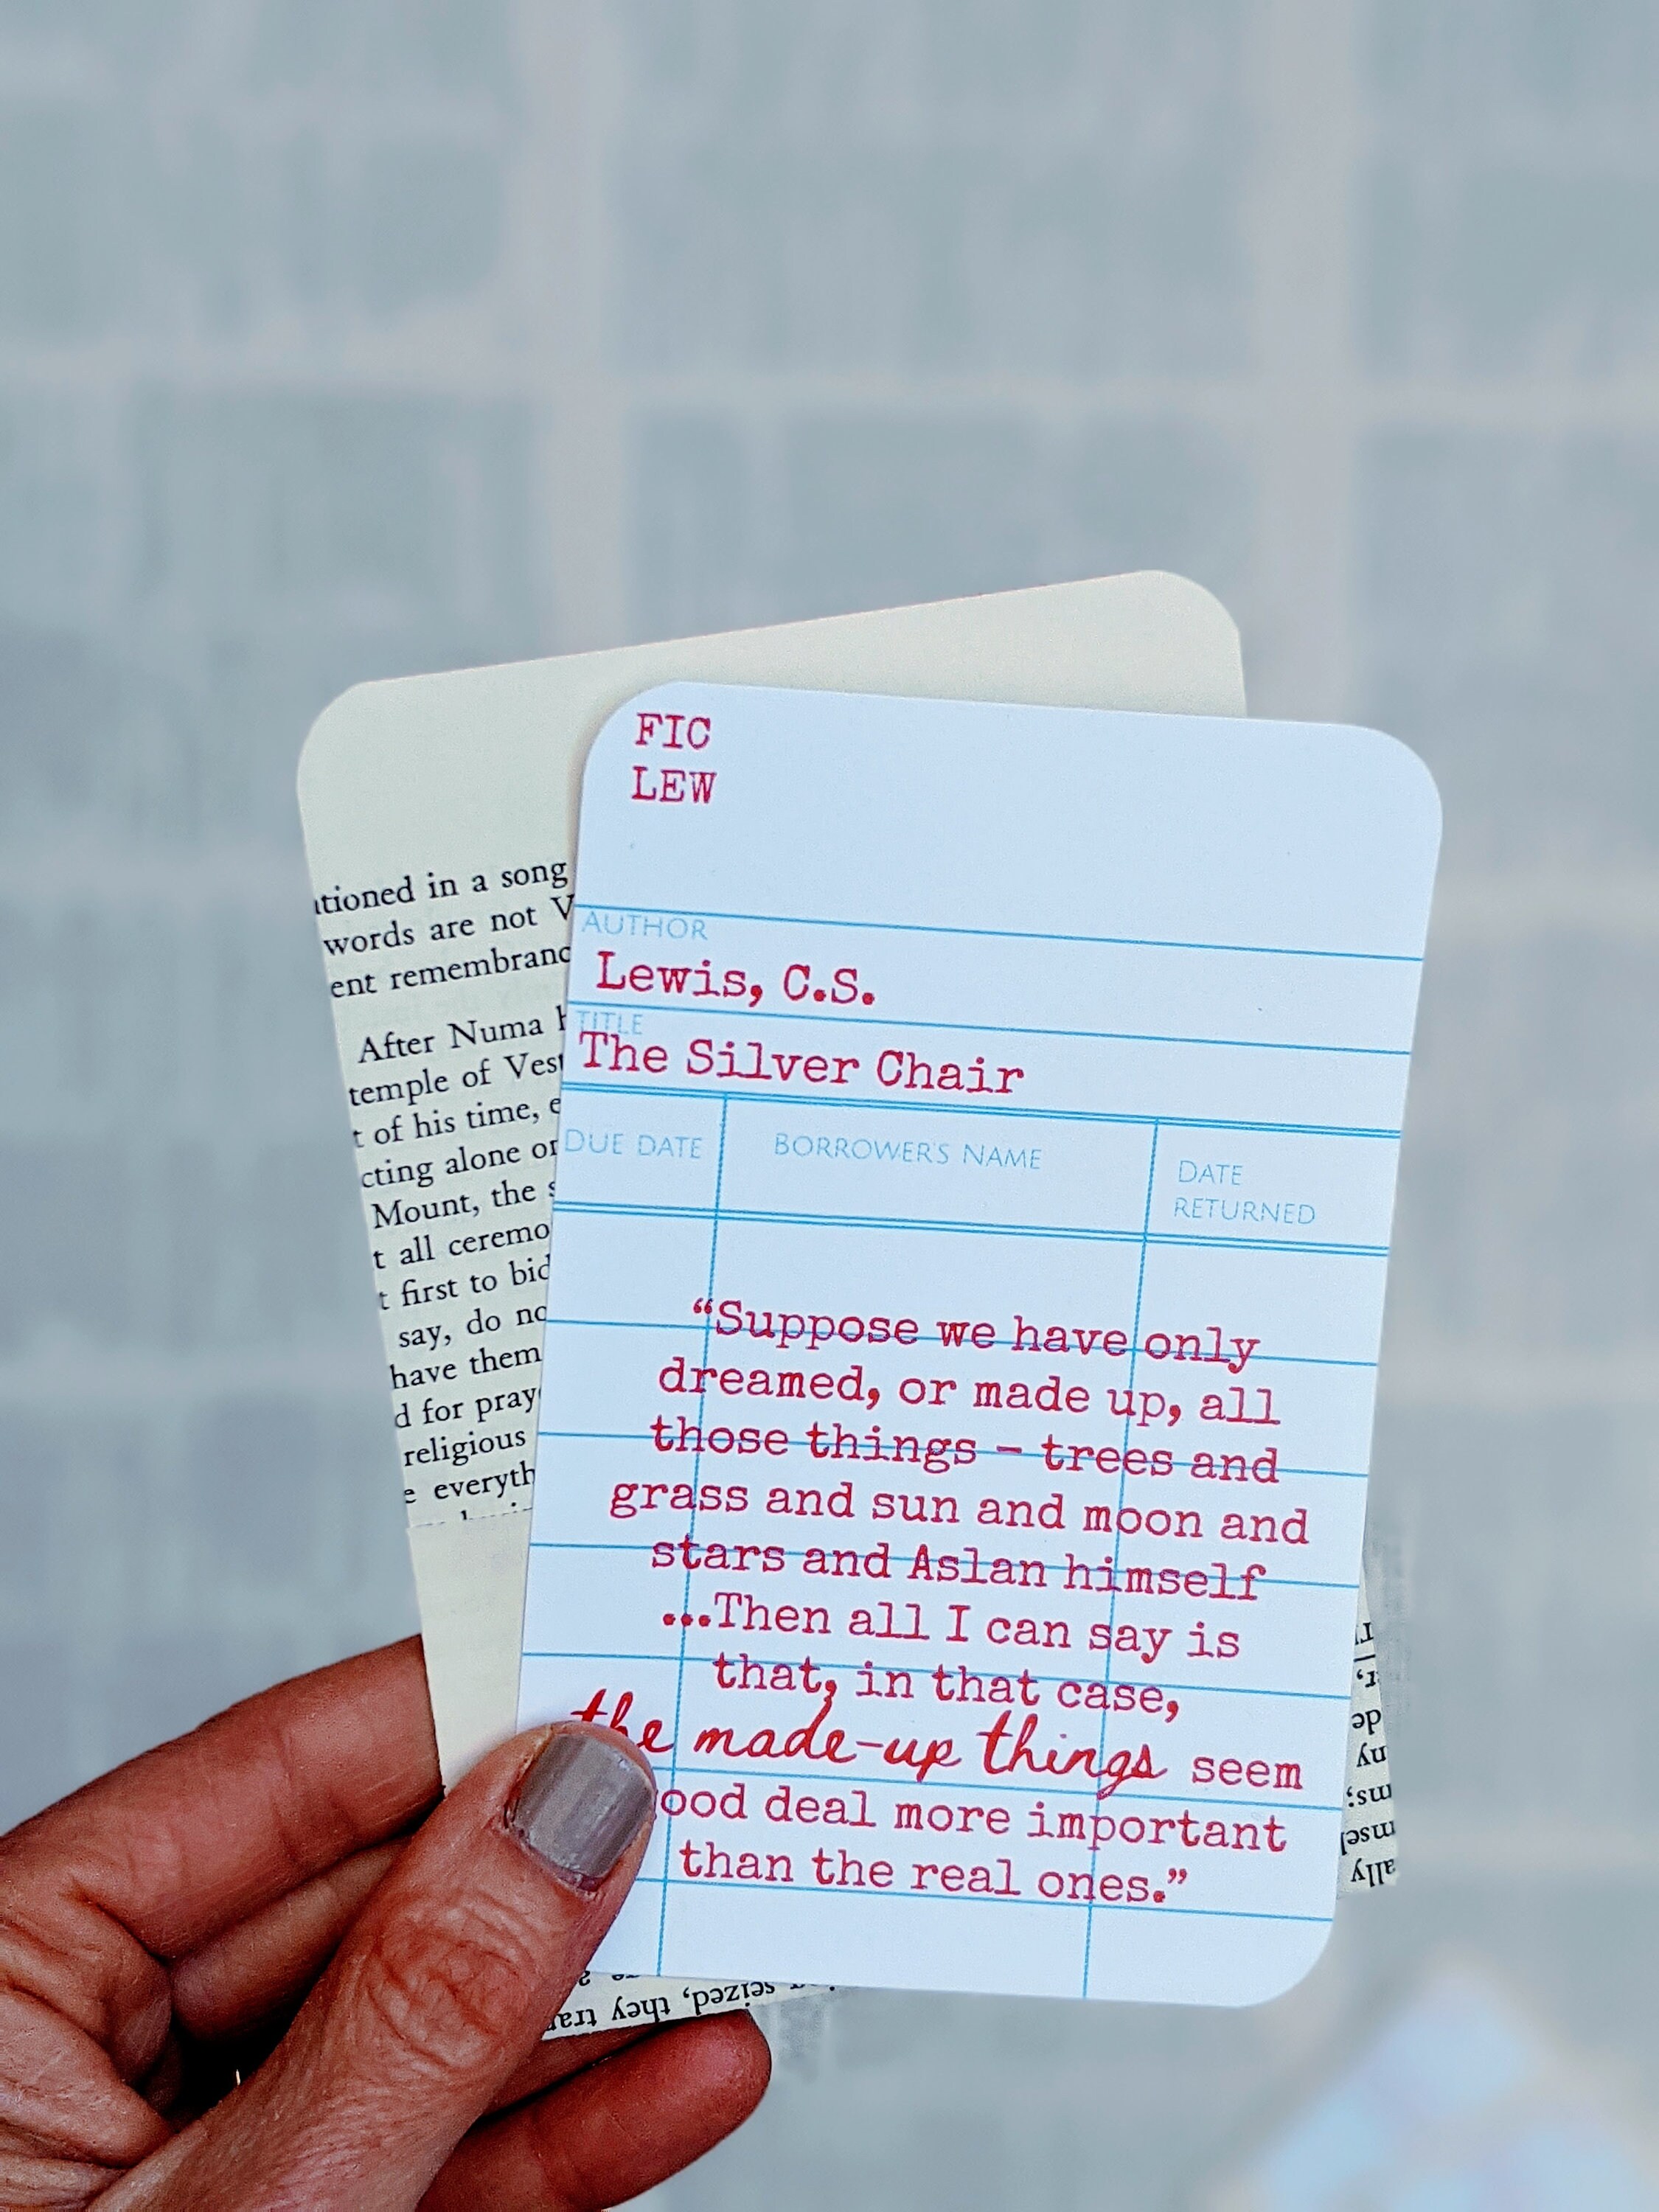 FIC
LEW
AUTHOR
Lewis, C.S.
TITLE
The Silver Chair
DUE DATE
BORROWER'S NAME
DATE
RETURNED
“Suppose we have only
dreamed, or made up, all
those things – trees and
grass and sun and moon and
stars and Aslan himself
...Then all I can say is
that, in that case,
the made-up things seem
ood deal more important
than the real ones.”
tioned in a song
words are not V
ent remembranc
After Numa h
temple of Vest
t of his time, e
cting alone or
Mount, the s
t all ceremo
t first to bid
say, do no
have them
d for pray
religious
e everyth
seized, they tra
r,
de
ny
ms;
msel
ally